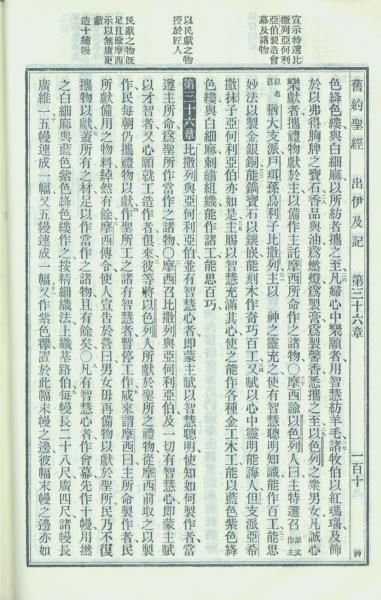 宣示特選比
撒列亞何利
亞伯製造會
幕及諸物
以民獻之物
授於匠人
民獻之物既
足且餘摩西
示以無庸更
獻
造十縵幔
舊約聖經　出伊及記　第三十六章　一百十
色絳色縷與白細麻以所紡者攜之至凡婦心中樂願者用智慧紡羊毛諸牧伯以紅瑪瑙及飾
於以弗得胸牌之寶石香品與油爲燃燈爲製膏爲製馨香悉攜之至以色列之衆男女凡誠心
樂獻者攜禮物獻於主以備作主託摩西所命作之諸物〇摩西諭以色列人曰主特選召原文作主
召名猶大支派戶珥孫烏利子比撒列主以　神之靈充之使有智慧聰明知識能作百工能思
妙法以製金銀銅能鐫寶石以鑲嵌能刻木作奇巧百工又賦以心中靈明能誨人但支派亞希
撒抹子亞何利亞伯亦如是主賜以智慧充滿其心使之能作各種金工木工能以藍色紫色絳
色縷與白細麻刺繡組織能作諸工能思百巧
第三十六章　比撒列與亞何利亞伯並有智慧心者即蒙主賦以智慧聰明使知如何製作者當
遵主所命爲聖所作當作之諸物〇摩西召比撒列與亞何利亞伯及一切有智慧心即蒙主賦
以才智者又心願就工造作者俱來彼等將以色列人所獻於聖所之禮物從摩西前取之以製
作民每朝仍攜禮物以獻作聖所工之諸有智慧者暫停工作咸來謂摩西曰主所命製作者民
所獻備用之物料綽然有餘摩西傳令使人宣告於營曰男女毋再備物以獻於聖所民乃不復
攜物以獻蓋所有之材足以作當作之諸物且有餘矣〇凡有智慧心者作會幕先作十幔用撚
之白細麻與藍色紫色絳色縷作之按精細織法上織基路伯每幔長二十八尺廣四尺諸幔長
廣維一五幔連成一幅又五幔連成一幅又作紫色襻置於此幅末幔之邊彼幅末幔之邊亦如